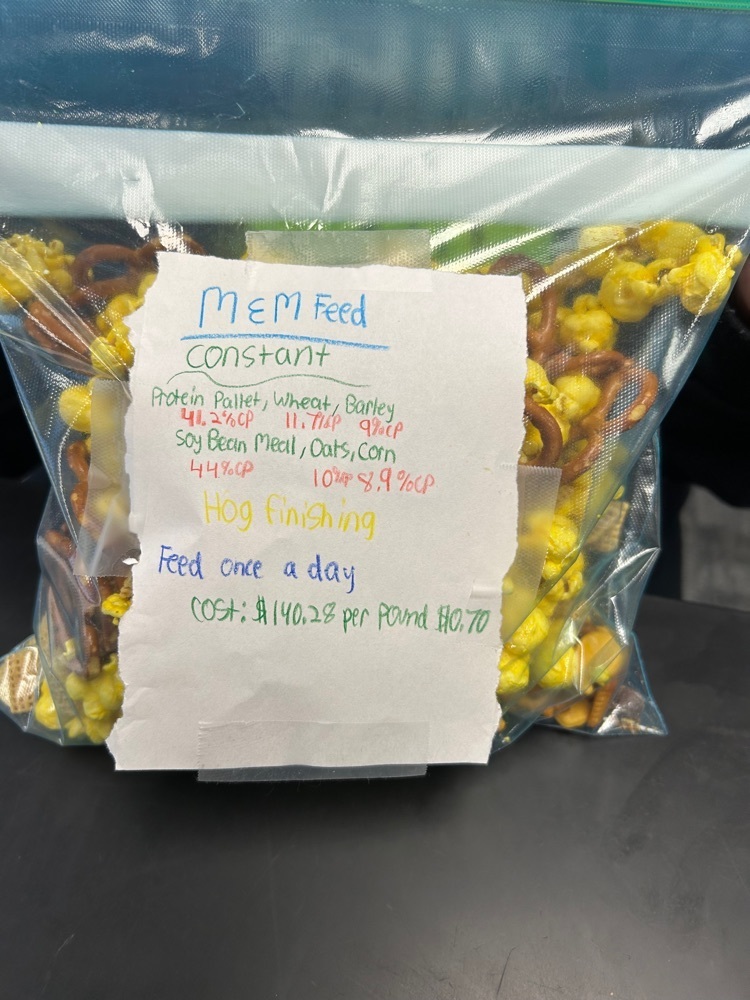 M&M Feed
constant
Protein Pallet, Wheat, Barley
41.2%CP 11.7%CP 9%CP
Soy Bean Meal, Oats, Corn
44%CP 10%CP 8.9%CP
Hog finishing
Feed once a day
COST: $140.28 per pound $0.70